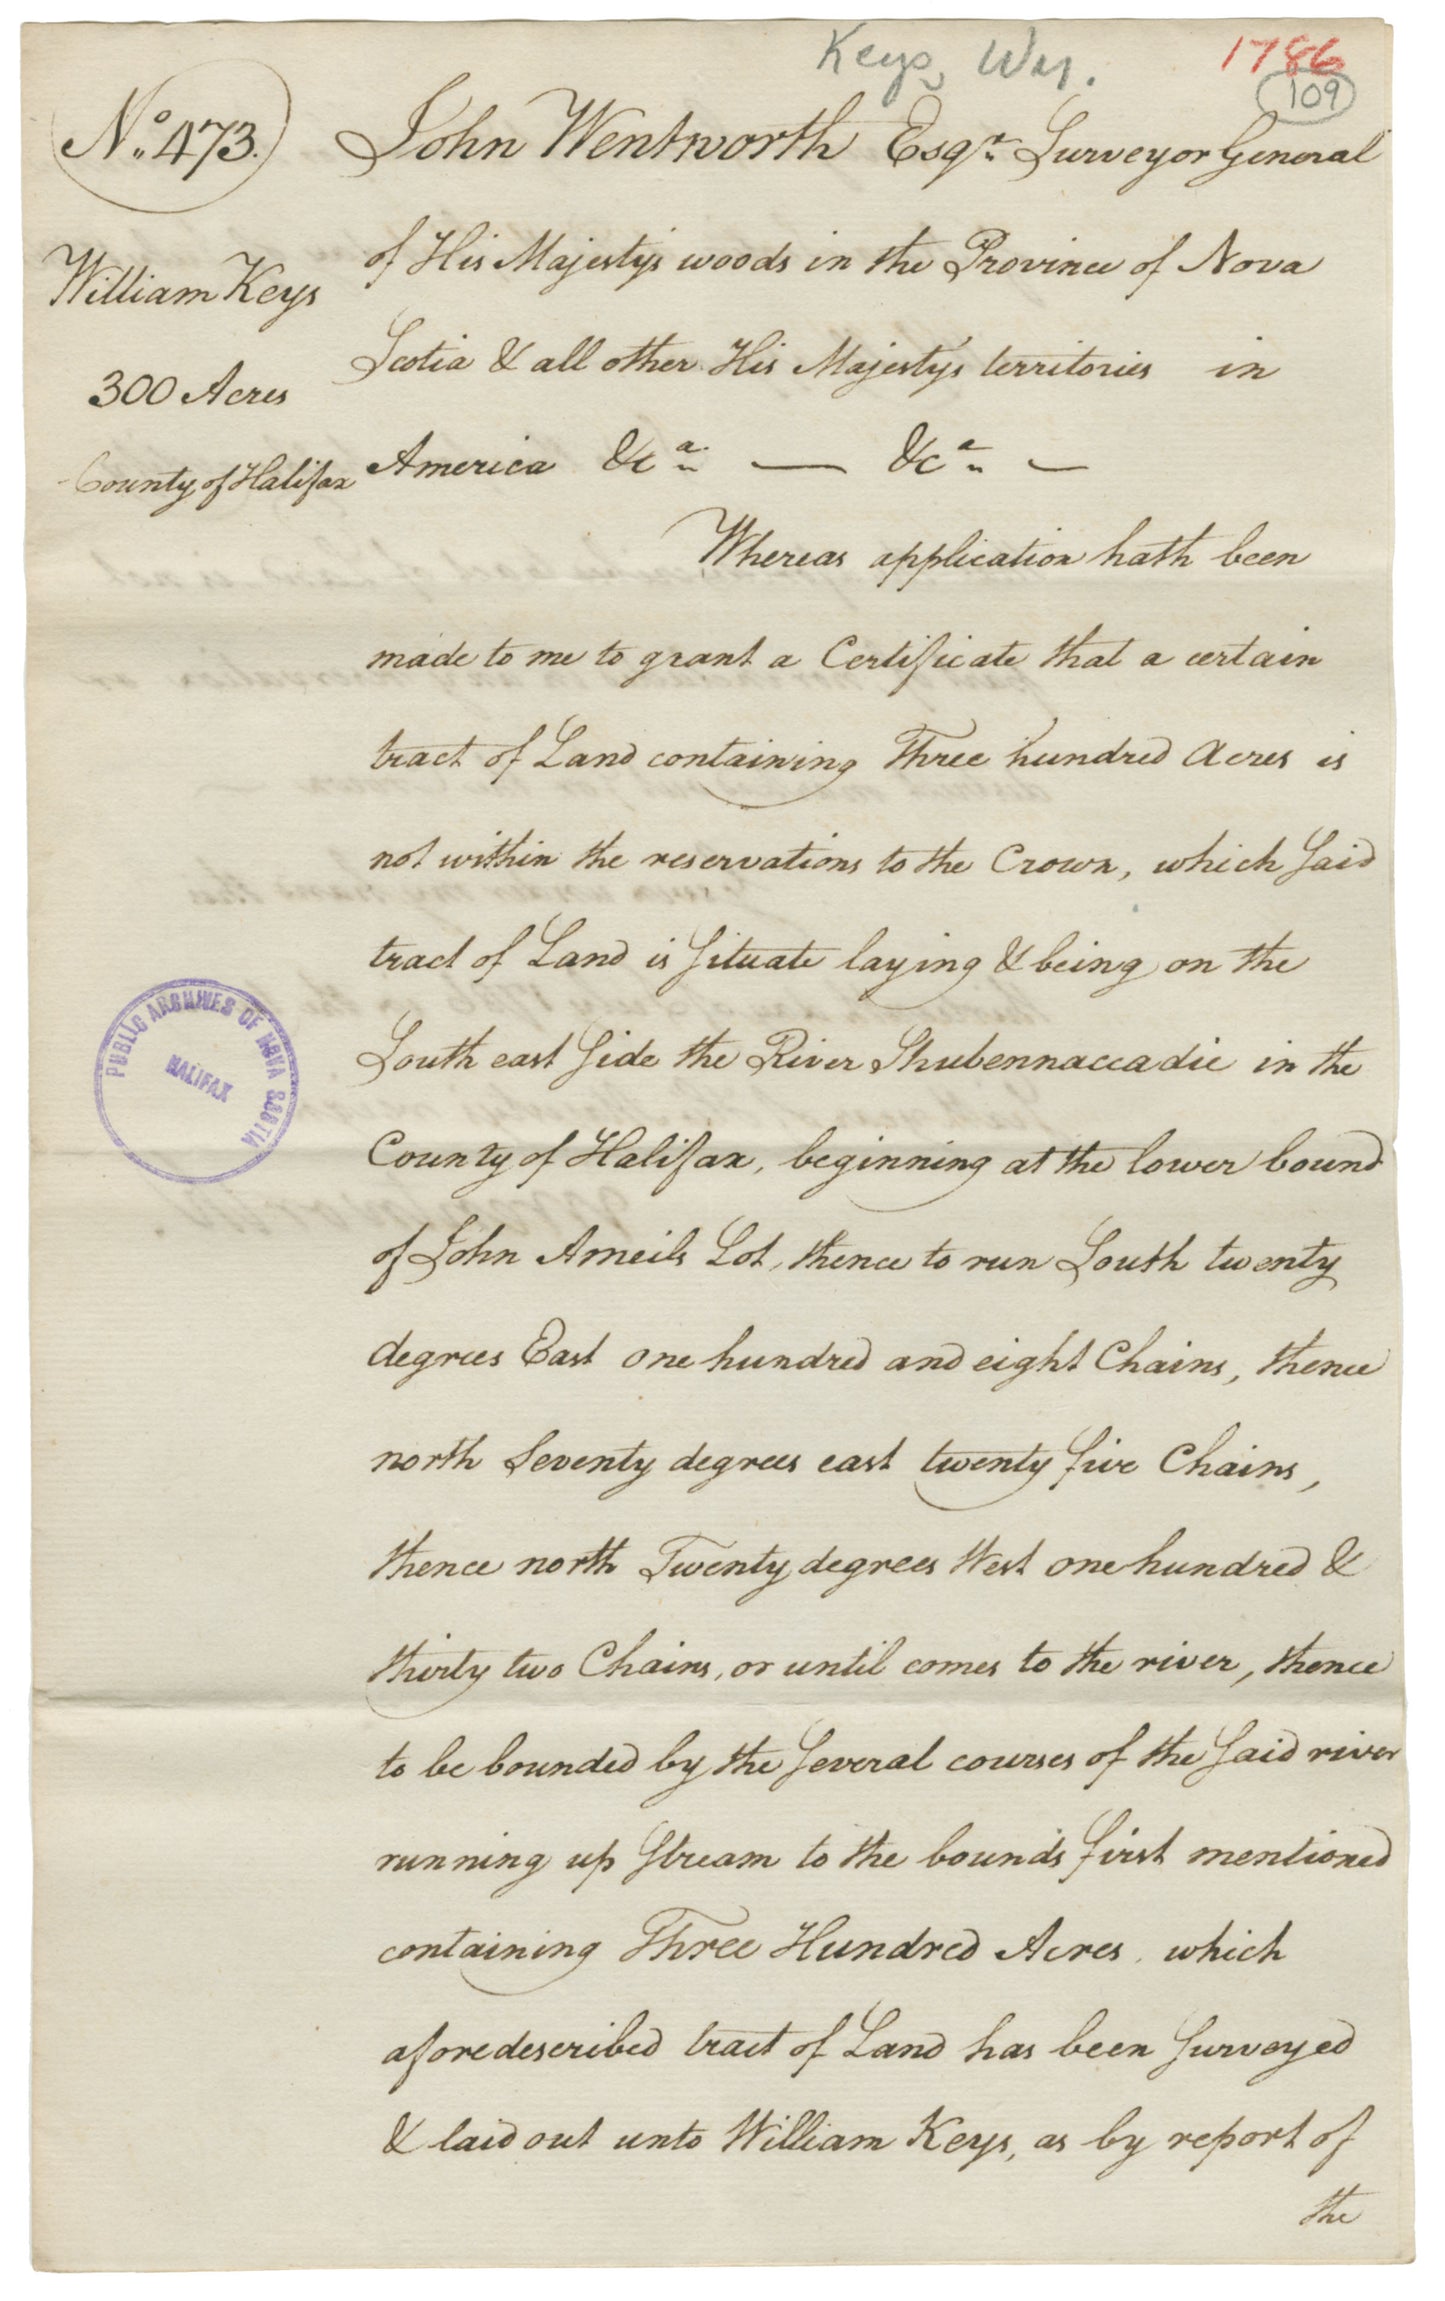 Keys, Wm.
1786
109
No. 473.
William Keys
300 Acres
County of Halifax
John Wentworth Esqr. Surveyor General
of His Majestys woods in the Province of Nova
Scotia & all other His Majestys territories in
America &ca. — &ca. —
Whereas application hath been
made to me to grant a Certificate that a certain
tract of Land containing Three hundred Acres is
not within the reservations to the Crown, which Said
tract of Land is Situate laying & being on the
South east Side the River Shubennaccadie in the
County of Halifax, beginning at the lower bound
of John Ameils Lot, thence to run South twenty
degrees East one hundred and eight Chains, thence
north Seventy degrees east twenty five Chains,
thence north Twenty degrees West one hundred &
thirty two Chains, or until comes to the river, thence
to be bounded by the Several courses of the Said river
running up Stream to the bounds first mentioned
containing Three Hundred Acres, which
aforedescribed tract of Land has been Surveyed
& laid out unto William Keys, as by report of
the
PUBLIC ARCHIVES OF NOVA SCOTIA
HALIFAX